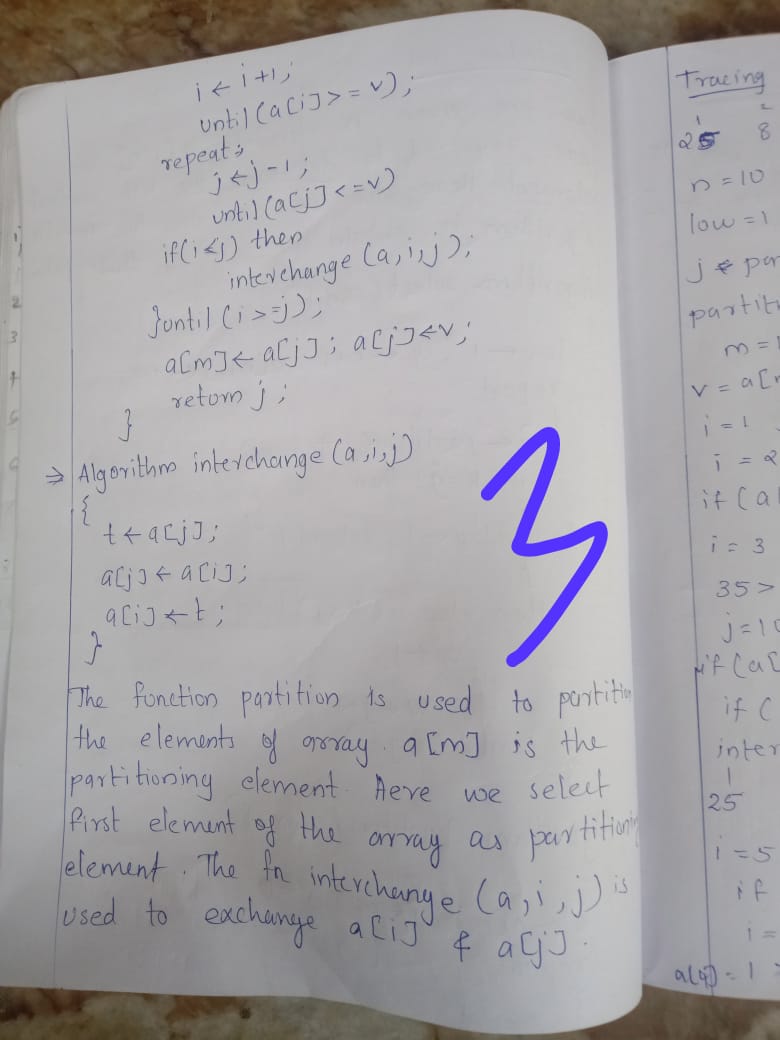 i ← i+1;
until (a[i] >= v);
repeat;
j ← j-1;
until (a[j] <= v)
if(i<j) then
interchange (a,i,j);
}until (i >=j);
a[m] ← a[j]; a[j] ← v;
return j;
}
⇒ Algorithm interchange (a,i,j)
{
t ← a[j];
a[j] ← a[i];
a[i] ← t;
}
The function partition is used to partition
the elements of array. a[m] is the
partitioning element. Here we select
first element of the array as partitioning
element. The fn interchange (a,i,j) is
used to exchange a[i] & a[j].
3
Tracing
1 2
25 8
n = 10
low = 1
j ← par
partiti
m = 1
v = a[m
i = 1
i = 2
if (a
i = 3
35 >
j = 10
if (a[
if (
inter
1
25
i = 5
if
i =
= 1